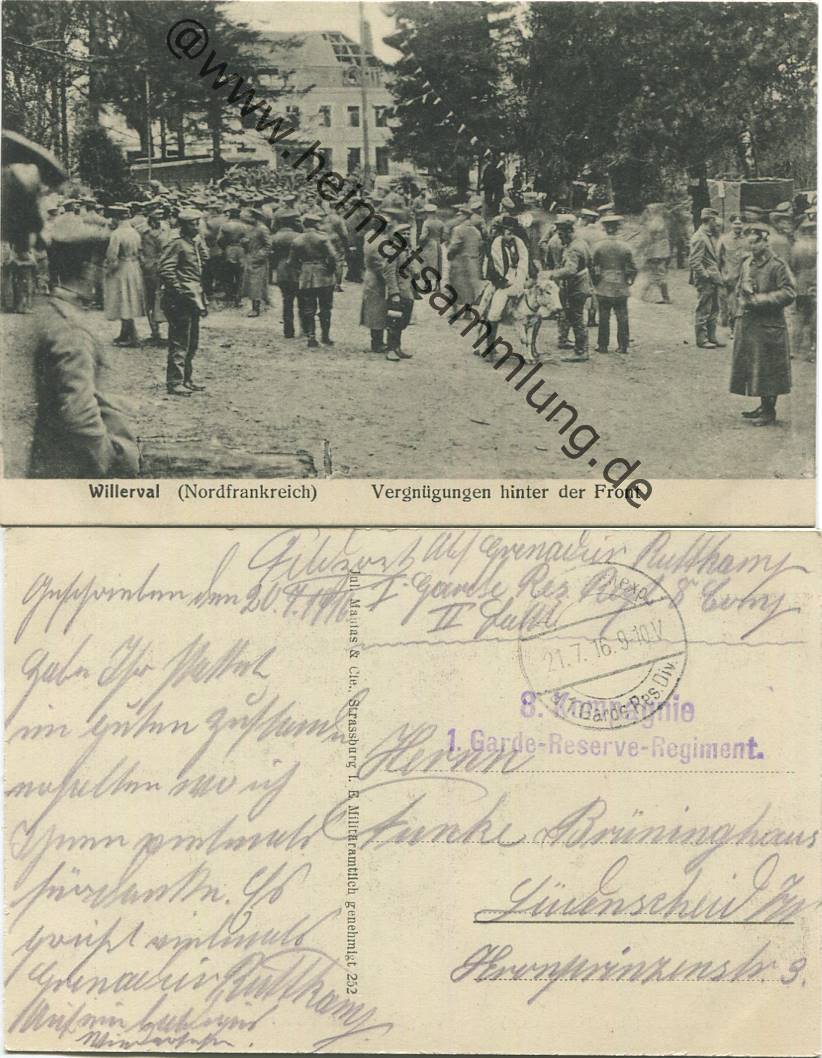 @www.heimatsammlung.de
Willerval (Nordfrankreich) Vergnügungen hinter der Front
Feldpost Abs Grenadier Kuttkamp
Geschrieben den 20.7.1916 I Garde Res. Regt 8 Comp
II Battl
21.7.16.9-10V
1. Garde Res. Div.
8. Kompagnie
1. Garde-Reserve-Regiment.
Jul. Manias & Cie., Strassburg i. E. Militäramtlich genehmigt 252
Habe Ihr Packet
im guten Zustande
erhalten wo ich
Ihnen vielmals
für danke. Es
grüßt vielmals
Grenadier Kuttkamp
Auf ein baldiges
Wiedersehen.
Herrn
Funke Brüninghaus
Lüdenscheid
Kronprinzenstr. 3.